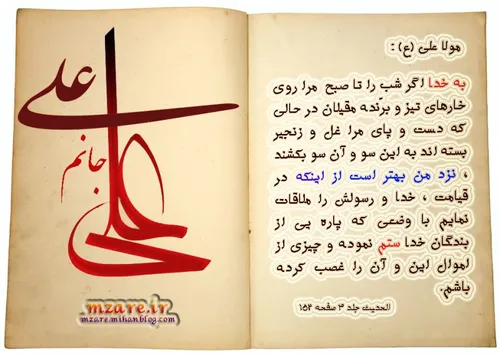 علی
جانم
علی
mzare.ir
mzare.mihanblog.com
مولا علی (ع) :
به خدا اگر شب را تا صبح مرا روی
خارهای تیز و برّنده مقیلان در حالی
که دست و پای مرا غل و زنجیر
بسته اند به این سو و آن سو بکشند
، نزد من بهتر است از اینکه در
قیامت ، خدا و رسولش را ملاقات
نمایم با وضعی که پاره یی از
بندگان خدا ستم نموده و چیزی از
اموال این و آن را غصب کرده
باشم.
الحدیث جلد ۳ صفحه ۱۵۴